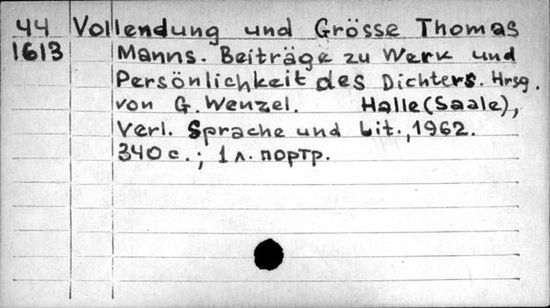 44 Vollendung und Grösse Thomas
1613 Manns. Beiträge zu Werk und
Persönlichkeit des Dichters. Hrsg.
von G. Wenzel. Halle (Saale),
Verl. Sprache und Lit., 1962.
340 с.; 1 л. портр.